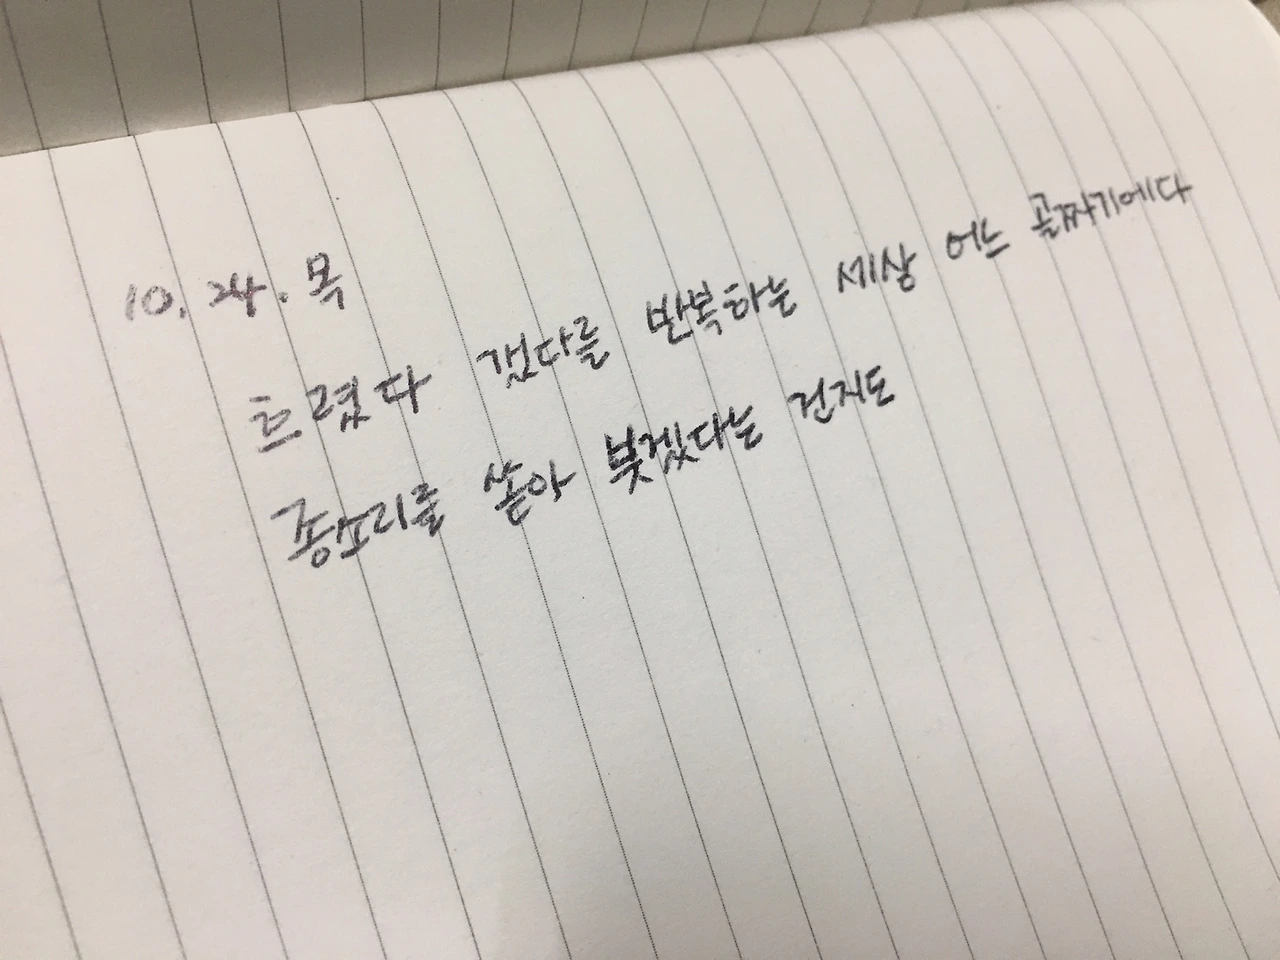 10. 24. 목
흐렸다 갰다를 반복하는 세상 어느 골짜기에다
종소리를 쏟아 붓겠다는 건지도